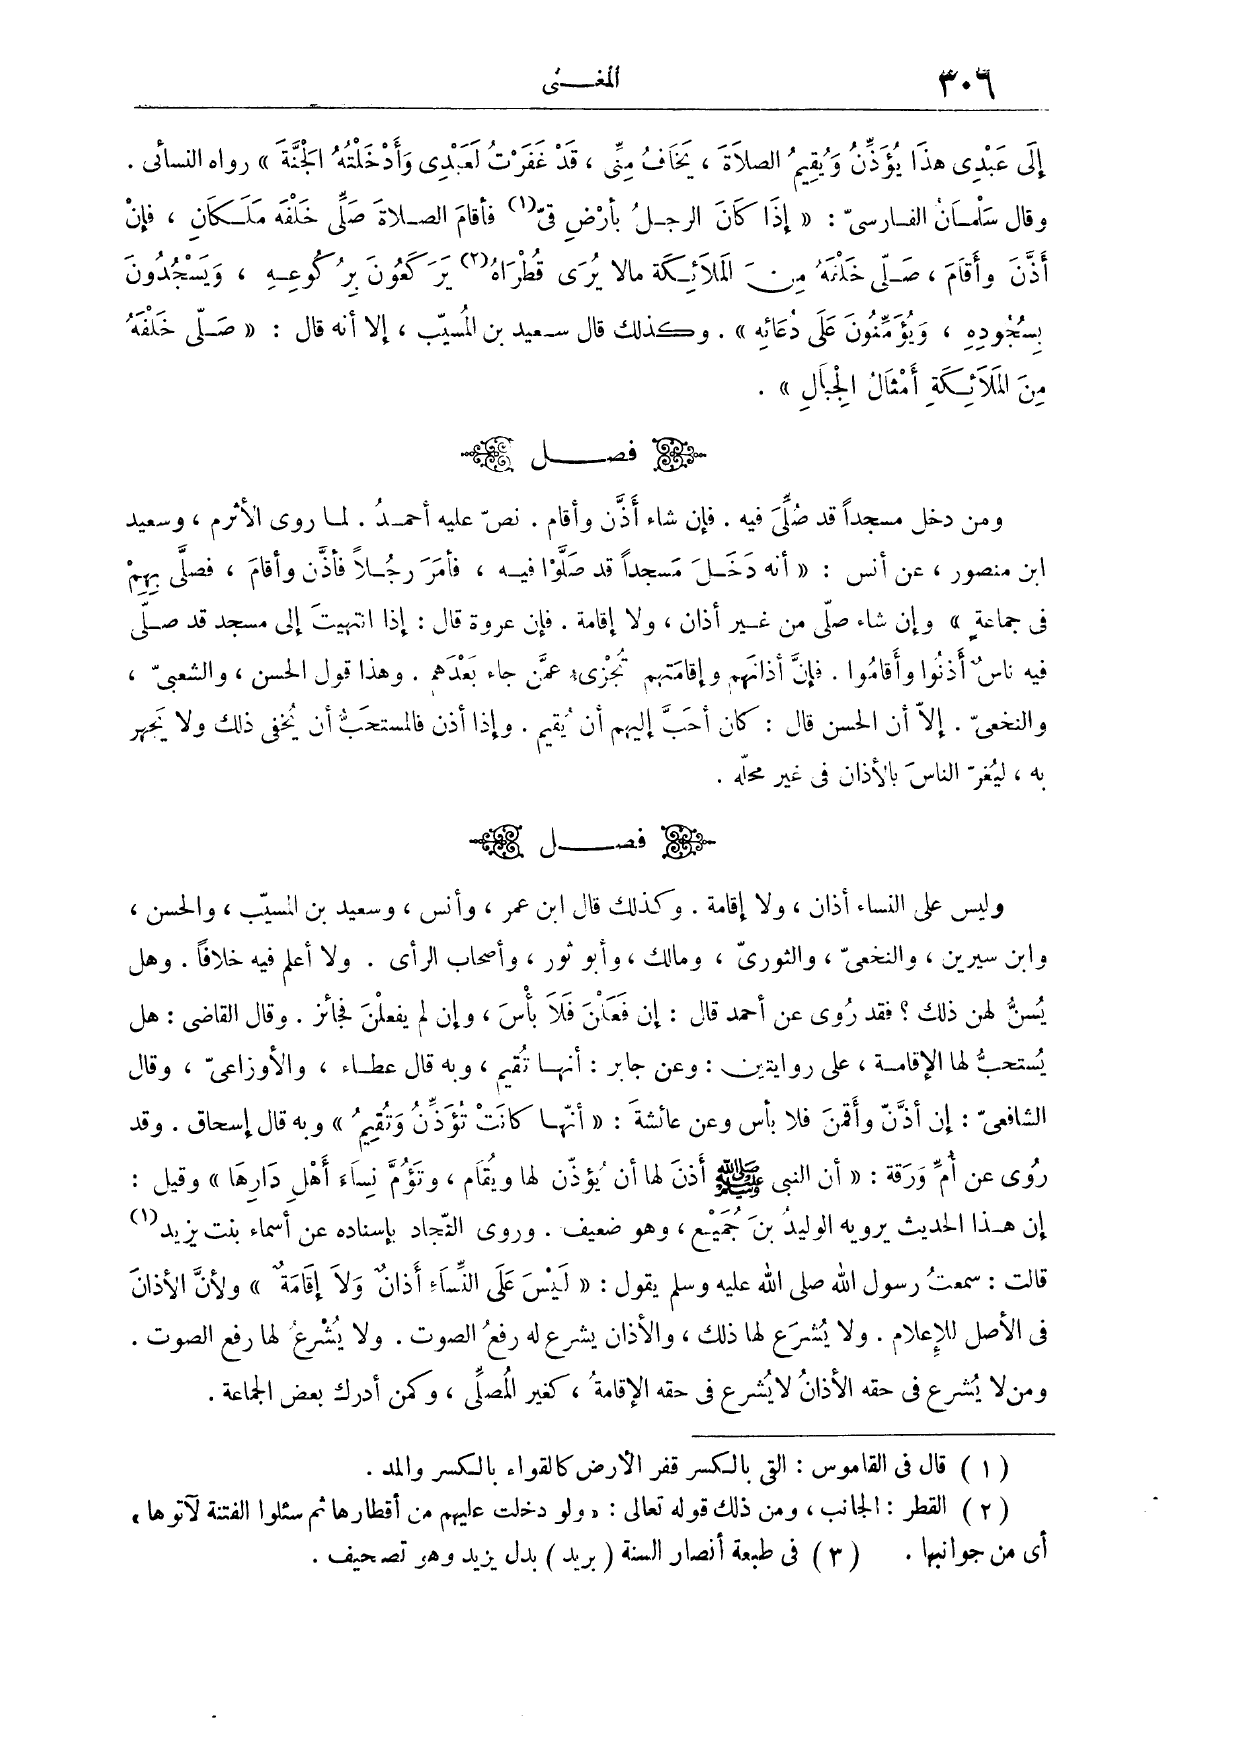 ٣٠٦
المغنى
إِلَى عَبْدِى هذَا يُؤَذِّنُ وَيُقِيمُ الصلاَةَ ، يَخَافُ مِنِّى ، قَدْ غَفَرْتُ لَعَبْدِى وَأَدْخَلْتُهُ الجْنَّةَ » رواه النسائى .
وقال سَلْمَانُ الفارسىّ : « إِذَا كَانَ الرجلُ بأَرْضِ قىّ(١) فأقامَ الصلاةَ صَلَّى خَلْفَه مَلَكَانِ ، فإنْ
أَذَّنَ وأَقَامَ ، صَلّى خَلْفَهُ مِنَ المَلاَئِكَة مالا يُرَى قُطْرَاهُ(٢) يَرْكَعُونَ بِرُكُوعِهِ ، وَيَسْجُدُونَ
بِسُجُودِهِ ، وَيُؤَمِّنُونَ عَلَى دُعَائِه » . وكذلك قال سعيد بن المُسيّب ، إلا أنه قال : « صَلّى خَلْفَهُ
مِنَ المَلَائِكَةِ أَمْثَالُ الْجِبَالِ » .
فصل
ومن دخل مسجداً قد صُلِّىَ فيه . فإن شاء أَذَّن وأقام . نصّ عليه أحمدُ . لما روى الأثرم ، وسعيد
ابن منصور ، عن أنس : « أنه دَخَلَ مَسجداً قد صَلَّوْا فيه ، فأمَرَ رجُلاً فأذَّن وأقامَ ، فصلَّى بِهِمْ
فى جماعةٍ » وإن شاء صلّى من غير أذان ، ولا إقامة . فإن عروة قال : إذا انتهيتَ إلى مسجد قد صلّى
فيه ناسٌ أَذنُوا وأَقامُوا . فإنَّ أذانَهم وإقامَتهم تُجْزىء عمَّن جاء بَعْدَهم . وهذا قول الحسن ، والشعبىّ ،
والنخعىّ . إلاّ أن الحسن قال : كان أحَبَّ إليهم أن يُقيم . وإذا أذن فالمستحَبُّ أن يُخفى ذلك ولا يَجهر
به ، ليُغرّ الناسَ بالأذان فى غير محلّه .
فصل
وليس على النساء أذان ، ولا إقامة . وكذلك قال ابن عمر ، وأنس ، وسعيد بن المسيّب ، والحسن ،
وابن سيرين ، والنخعىّ ، والثورىّ ، ومالك ، وأبو ثور ، وأصحاب الرأى . ولا أعلم فيه خلافاً . وهل
يُسنُّ لهن ذلك ؟ فقد رُوى عن أحمد قال : إن فَعَلْنَ فَلاَ بأْسَ ، وإن لم يفعلْنَ فجائز . وقال القاضى : هل
يُستحبُّ لها الإقامة ، على روايتين : وعن جابر : أنها تُقيم ، وبه قال عطاء ، والأوزاعىّ ، وقال
الشافعىّ : إن أذَّنّ وأقمنَ فلا بأس وعن عائشةَ : « أنّها كانَتْ تُؤَذِّنُ وَتُقِيمُ » وبه قال إسحاق . وقد
رُوى عن أُمِّ وَرَقة : « أن النبى ﷺ أذنَ لها أن يُؤذّن لها ويقَام ، وتَؤُمَّ نِسَاءَ أَهْلِ دَارِهَا » وقيل :
إن هذا الحديث يرويه الوليدُ بنَ جُمَيْع ، وهو ضعيف . وروى النّجاد بإسناده عن أسماء بنت يزيد(١)
قالت : سمعتُ رسول الله صلى الله عليه وسلم يقول : « لَيْسَ عَلَى النِّسَاءِ أَذانٌ وَلاَ إِقَامَةٌ » ولأنَّ الأذانَ
فى الأصل للإِعلام . ولا يُشرَع لها ذلك ، والأذان يشرع له رفعُ الصوت . ولا يُشْرعُ لها رفع الصوت .
ومن لا يُشرع فى حقه الأذانُ لايُشرع فى حقه الإقامةُ ، كغير المُصلِّى ، وكمن أدرك بعض الجماعة .
( ١ ) قال فى القاموس : القى بالكسر قفر الأرض كالقواء بالكسر والمد .
( ٢ ) القطر : الجانب ، ومن ذلك قوله تعالى : «ولو دخلت عليهم من أقطارها ثم سئلوا الفتنة لآتوها»
أى من جوانبها . ( ٣ ) فى طبعة أنصار السنة ( بريد ) بدل يزيد وهو تصحيف .